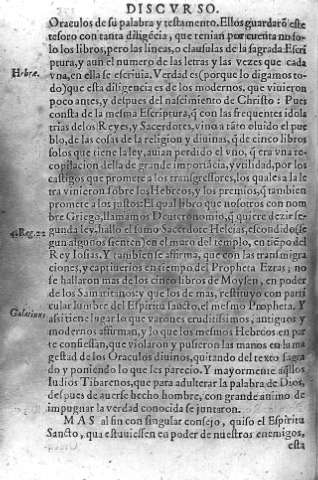 DISCVRSO.
Oraculos de su palabra y testamento. Ellos guardarõ este
tesoro con tanta diligẽcia, que tenian por cuenta no so-
lo los libros, pero las lineas, o clausulas de la sagrada Escri
ptura, y aun el numero de las letras y las vezes que cada
Hebræ. vna, en ella se escriuia. Verdad es (porque lo digamos to-
do) que esta diligencia es de los modernos, que viuieron
poco antes, y despues del nascimiento de Christo: Pues
consta de la mesma Escriptura, q̃ con las frequentes idola
trias de los Reyes, y Sacerdotes, vino a tãto oluido el pue
blo, de las cosas de la religion y diuinas, q̃ de cinco libros
solos que tiene la ley, auian perdido el vno, q̃ era vna re
copilacion della de grande importãcia, y vtilidad, por los
castigos que promete a los transgressores, los quales a la le
tra vinieron sobre los Hebreos, y los premios, q̃ tambien
promete a los justos: El qual libro que nosotros con nom
bre Griego, llamamos Deuteronomio, q̃ quiere dezir se-
4. Reg. 22 gunda ley, hallo el sumo Sacerdote Helcias, escondido (se
gun algunos sienten) en el muro del templo, en tiẽpo del
Rey Iosias. Y tambien se affirma, que con las transmigra
ciones, y captiuerios en tiempo del Propheta Ezras, no
se hallaron mas de los cinco libros de Moysen, en poder
de los Samaritanos; y que los de mas, restituyo con parti
cular lumbre del Espiritu sancto, el mesmo Propheta. Y
Galatinus assi tiene lugar lo que varones eruditissimos, antiguos y
modernos affirman, y lo que los mesmos Hebreos en par
te confiessan, que violaron y pusieron las manos en la ma
gestad de los Oraculos diuinos, quitando del texto sagra
do y poniendo lo que les parecio. Y mayormente aq̃llos
Iudios Tibarenos, que para adulterar la palabra de Dios,
despues de auerse hecho hombre, con grande animo de
impugnar la verdad conocida se juntaron.
MAS al fin con singular consejo, quiso el Espiritu
Sancto, qua estauiessen en poder de nuestros enemigos,
esta